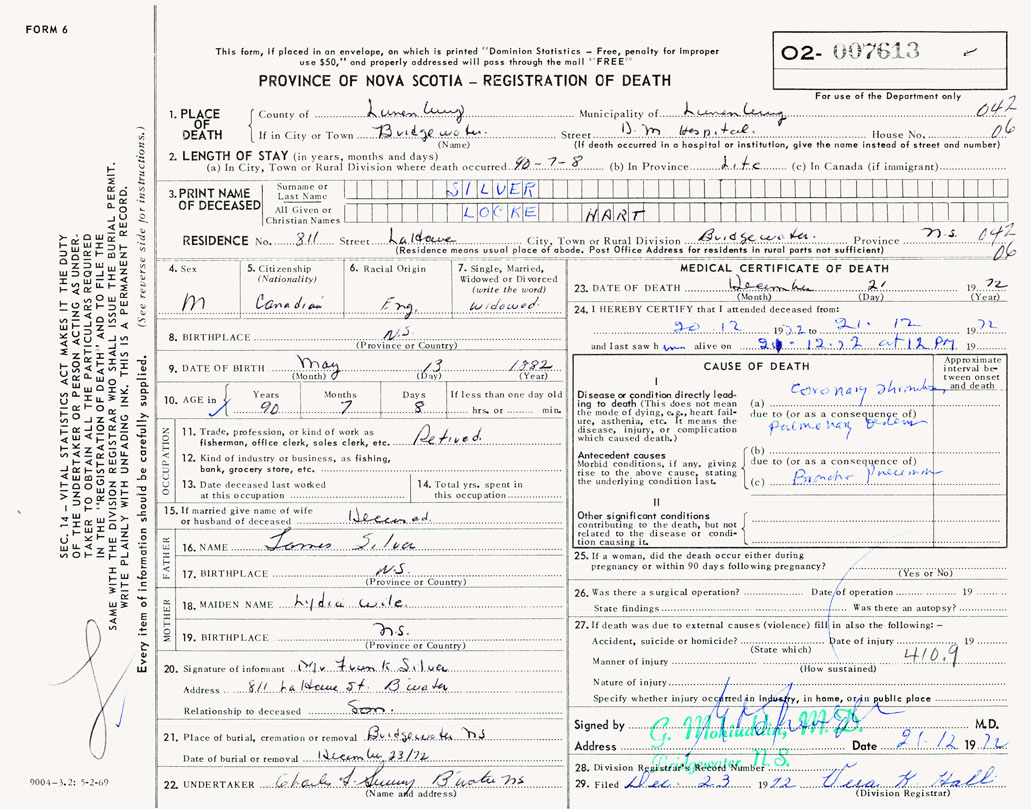 FORM 6
This form, if placed in an envelope, on which is printed "Dominion Statistics – Free, penalty for improper
use $50," and properly addressed will pass through the mail "FREE"
PROVINCE OF NOVA SCOTIA – REGISTRATION OF DEATH
O2- 007613
For use of the Department only
1. PLACE OF DEATH
County of Lunenburg Municipality of Lunenburg 042
If in City or Town Bridgewater. Street D. M Hospital. House No. 06
(Name) (If death occurred in a hospital or institution, give the name instead of street and number)
2. LENGTH OF STAY (in years, months and days)
(a) In City, Town or Rural Division where death occurred 90-7-8 (b) In Province Life (c) In Canada (if immigrant)
3. PRINT NAME OF DECEASED
Surname or Last Name SILVER
All Given or Christian Names LOCKE HART
RESIDENCE No. 811 Street LaHave City, Town or Rural Division Bridgewater. Province N.S. 042
(Residence means usual place of abode. Post Office Address for residents in rural parts not sufficient) 06
4. Sex M
5. Citizenship (Nationality) Canadian
6. Racial Origin Eng.
7. Single, Married, Widowed or Divorced (write the word) widowed.
8. BIRTHPLACE N.S.
(Province or Country)
9. DATE OF BIRTH May 13 1882
(Month) (Day) (Year)
10. AGE in Years 90 Months 7 Days 8 If less than one day old
hrs. or min.
OCCUPATION
11. Trade, profession, or kind of work as
fisherman, office clerk, sales clerk, etc. Retired.
12. Kind of industry or business, as fishing,
bank, grocery store, etc.
13. Date deceased last worked
at this occupation
14. Total yrs. spent in
this occupation
15. If married give name of wife
or husband of deceased Deceased.
FATHER
16. NAME James Silver
17. BIRTHPLACE N.S.
(Province or Country)
MOTHER
18. MAIDEN NAME Lydia Wile.
19. BIRTHPLACE N.S.
(Province or Country)
20. Signature of informant Mr Frank Silver
Address 811 LaHave St. B'water
Relationship to deceased Son.
21. Place of burial, cremation or removal Bridgewater NS
Date of burial or removal December 23/72
22. UNDERTAKER Charles B'water NS
(Name and address)
MEDICAL CERTIFICATE OF DEATH
23. DATE OF DEATH December 21 1972
(Month) (Day) (Year)
24. I HEREBY CERTIFY that I attended deceased from:
20 12 1972 to 21. 12 1972
and last saw him alive on 21-12.72 at 12 PM. 19
CAUSE OF DEATH
Approximate interval between onset and death
I
Disease or condition directly leading
to death (This does not mean
the mode of dying, e.g., heart failure,
asthenia, etc. It means the
disease, injury, or complication
which caused death.)
(a) Coronary Thrombosis
due to (or as a consequence of)
Pulmonary Oedema
Antecedent causes
Morbid conditions, if any, giving
rise to the above cause, stating
the underlying condition last.
(b)
due to (or as a consequence of)
(c) Broncho Pneumonia
II
Other significant conditions
contributing to the death, but not
related to the disease or condition
causing it.
25. If a woman, did the death occur either during
pregnancy or within 90 days following pregnancy?
(Yes or No)
26. Was there a surgical operation? Date of operation 19
State findings Was there an autopsy?
27. If death was due to external causes (violence) fill in also the following: –
Accident, suicide or homicide? Date of injury 19
(State which)
Manner of injury 410.9
(How sustained)
Nature of injury
Specify whether injury occurred in industry, in home, or in public place
Signed by G. Mohiuddin, M.D. M.D.
Address Bridgewater N.S. Date 21.12 1972
28. Division Registrar's Record Number
29. Filed Dec. 23 1972 Vera K Hall
(Division Registrar)
SEC. 14 – VITAL STATISTICS ACT MAKES IT THE DUTY
OF THE UNDERTAKER OR PERSON ACTING AS UNDERTAKER
TO OBTAIN ALL THE PARTICULARS REQUIRED
IN THE "REGISTRATION OF DEATH" AND TO FILE THE
SAME WITH THE DIVISION REGISTRAR WHO SHALL ISSUE THE BURIAL PERMIT.
WRITE PLAINLY WITH UNFADING INK. THIS IS A PERMANENT RECORD.
Every item of information should be carefully supplied. (See reverse side for instructions.)
9004-3.2: 5-2-69